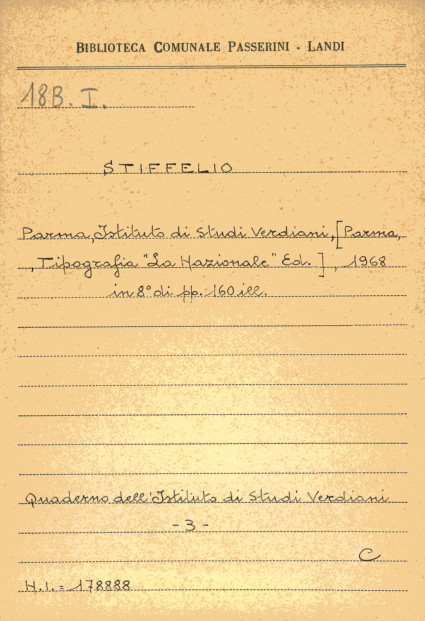 BIBLIOTECA COMUNALE PASSERINI - LANDI
18B. I.
STIFFELIO
Parma, Istituto di Studi Verdiani, [Parma,
, Tipografia "La Nazionale" Ed.], 1968
in 8° di pp. 160 ill.
Quaderno dell'Istituto di Studi Verdiani
- 3 -
C
N.I. = 178888